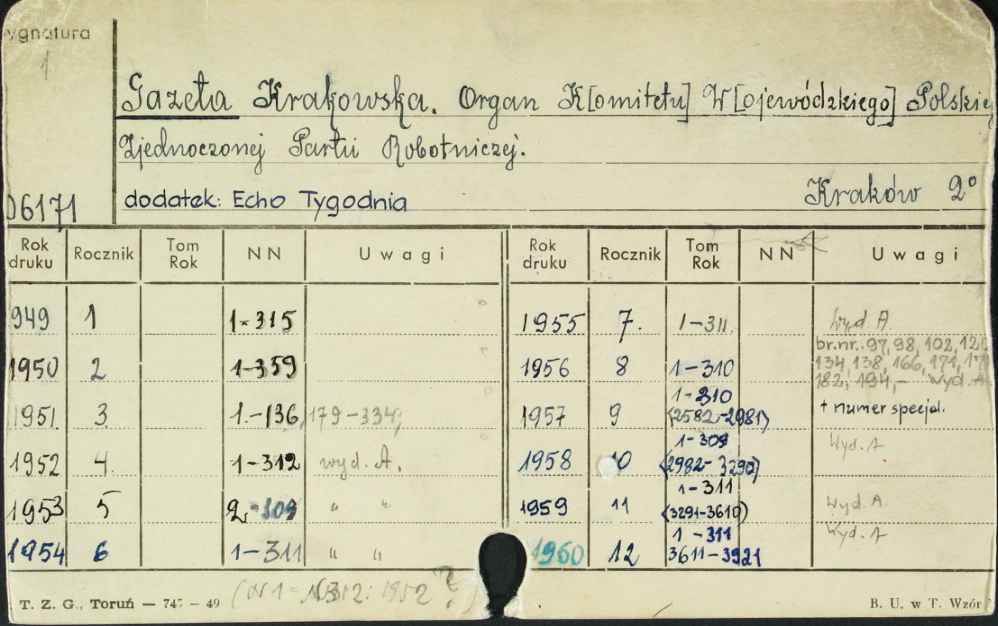 ygnatura
1
Gazeta Krakowska. Organ K[omitetu] W[ojewódzkiego] Polskiej
Zjednoczonej Partii Robotniczej.
dodatek: Echo Tygodnia Kraków 2°
D6171
Rok druku Rocznik Tom Rok NN Uwagi Rok druku Rocznik Tom Rok NN Uwagi
949 1 1-315 1955 7. 1-311. Wyd. A
1950 2 1-359 1956 8 1-310 br. nr. 97, 98, 102, 12
134, 138, 166, 171, 17
182, 194, - wyd. A
1951. 3. 1.-136, 179-334, 1957 9 1-310 (2582-2981) + numer specjal.
1952 4. 1-312 wyd. A. 1958 10 1-309 (2982-3290) Wyd. A
1953 5 2-309 " " 1959 11 1-311 (3291-3610) Wyd. A
1954 6 1-311 " " 1960 12 1-311 3611-3921 Wyd. A
T. Z. G., Toruń — 747 — 49 B. U. w T. Wzór